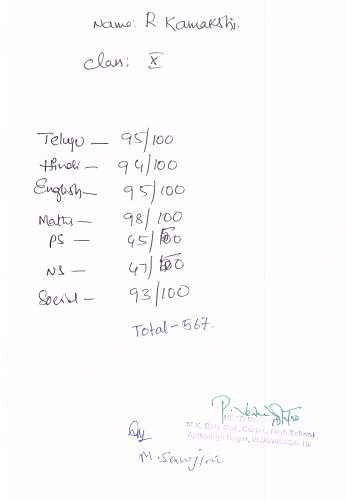 Name: R. Kamakshi.
Class: X
Telugu — 95/100
Hindi — 94/100
English — 95/100
Maths — 98/100
PS — 45/50
NS — 47/50
Social — 93/100
Total - 567.
HEAD
M.K. Baig Mpl. Corpn. High School
Ajithsingh Nagar, VIJAYAWADA-15.
M. Sarojini